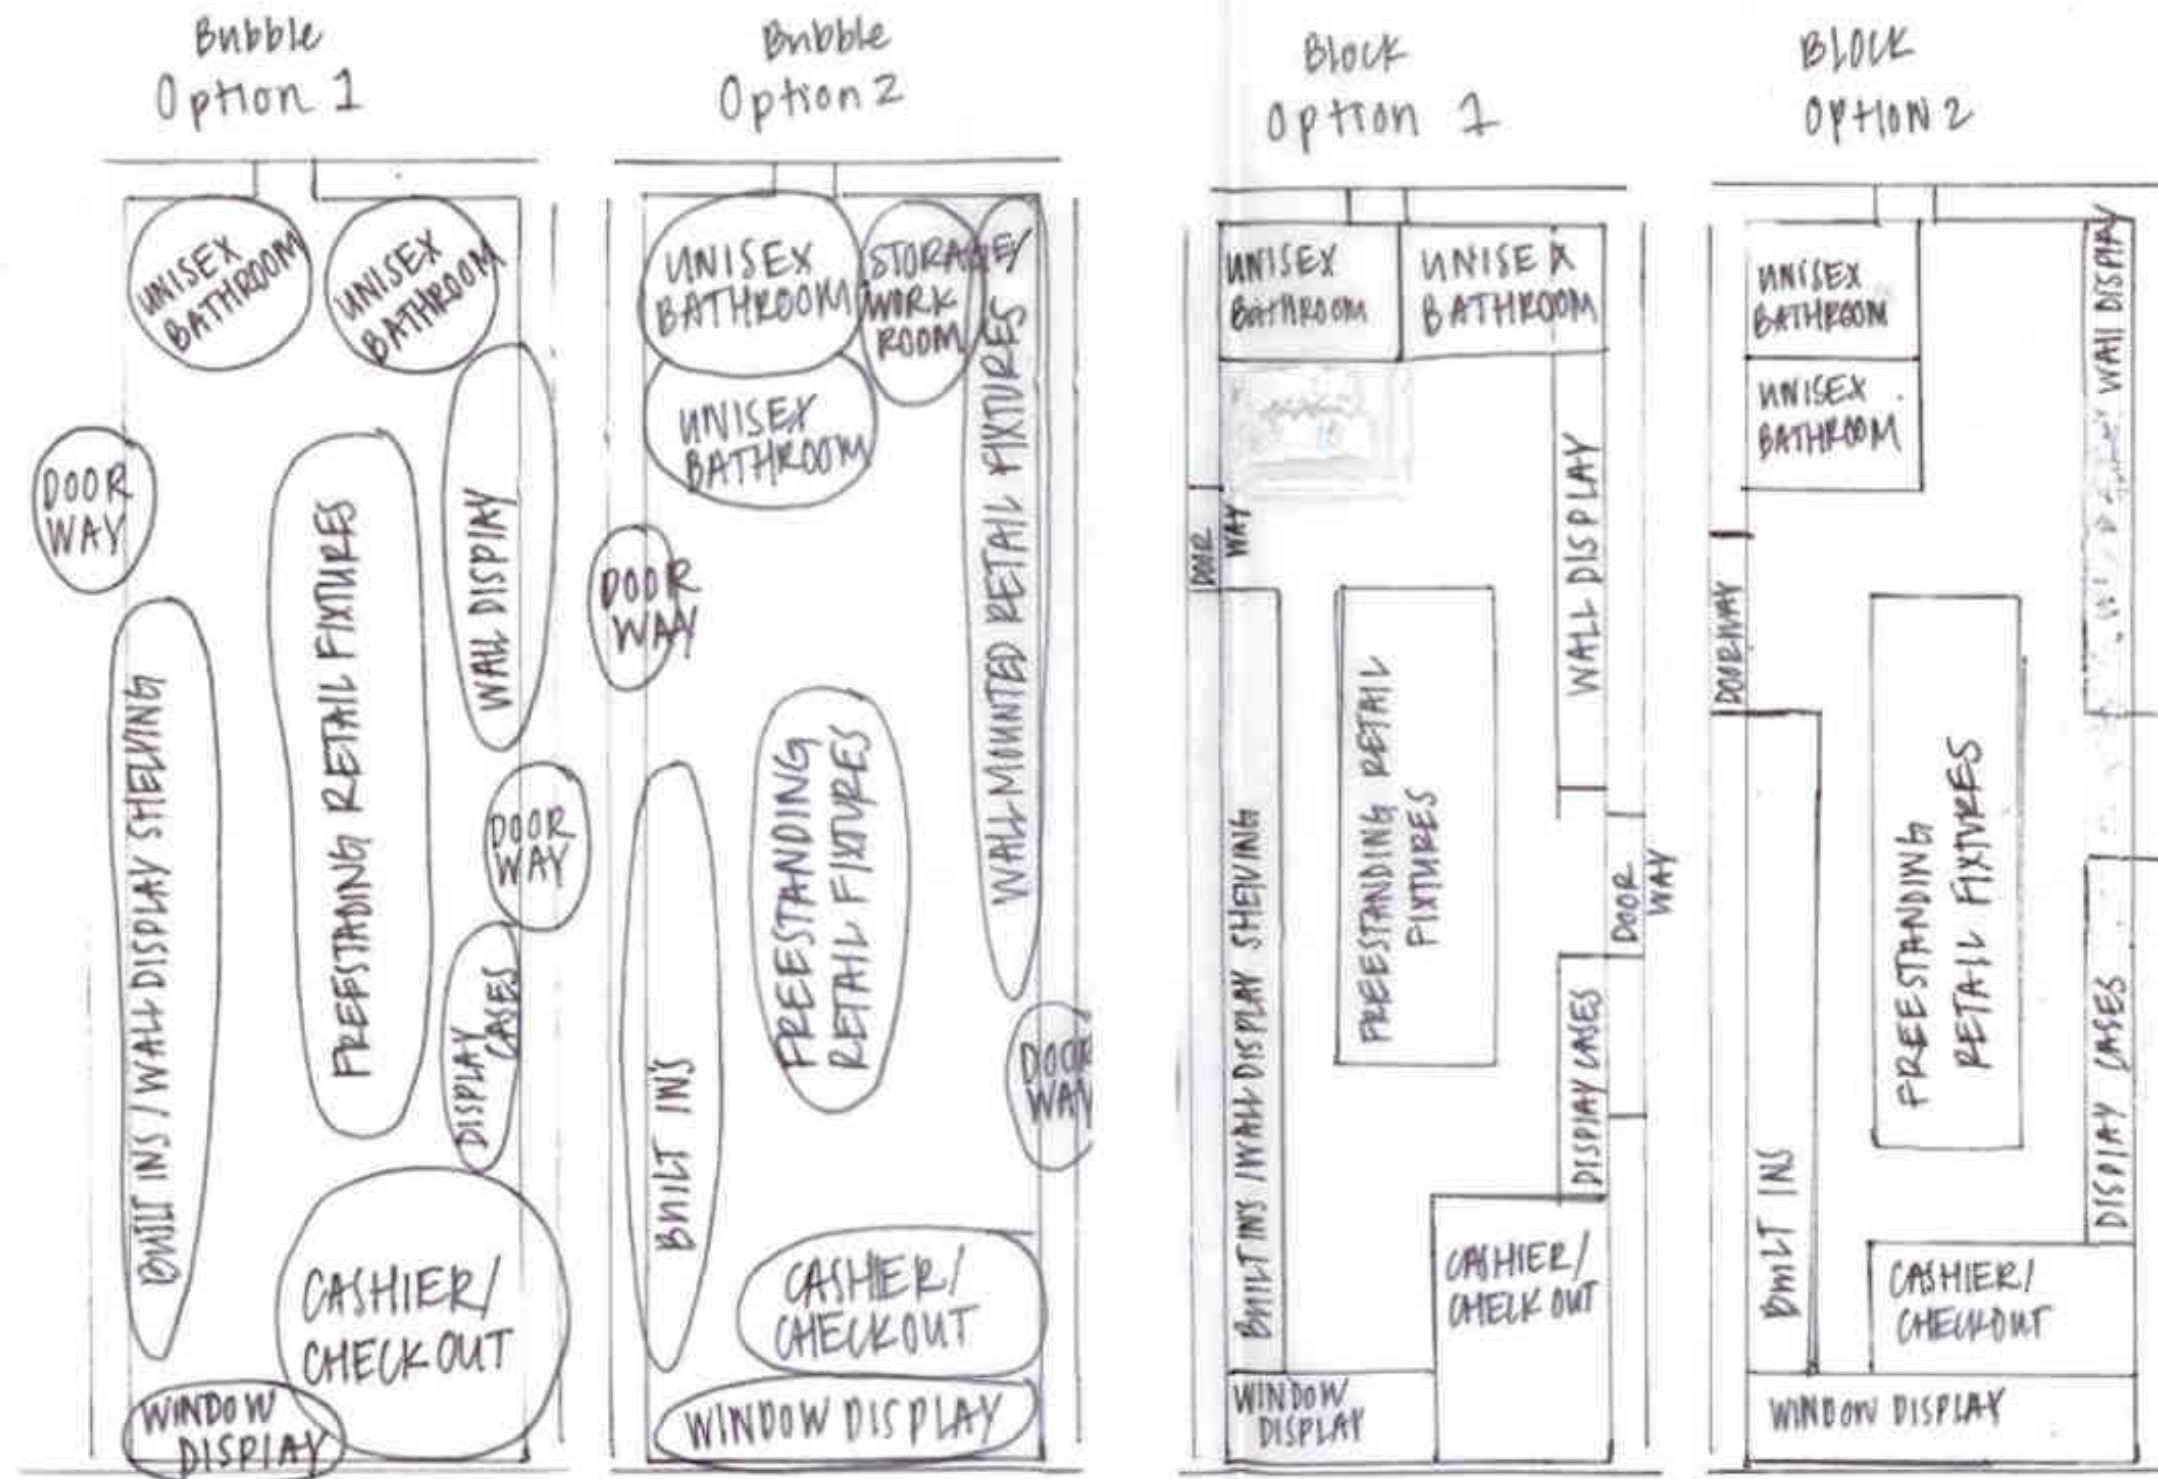 Bubble
Option 1
UNISEX
BATHROOM
UNISEX
BATHROOM
DOOR
WAY
WALL DISPLAY
FREESTADING RETAIL FIXTURES
BUILT INS / WALL DISPLAY SHELVING
DOOR
WAY
DISPLAY
CASES
CASHIER/
CHECKOUT
WINDOW
DISPLAY
Bubble
Option 2
UNISEX
BATHROOM
STORAGE/
WORK
ROOM
UNISEX
BATHROOM
WALL MOUNTED RETAIL FIXTURES
DOOR
WAY
FREESTANDING
RETAIL FIXTURES
BUILT INS
DOOR
WAY
CASHIER/
CHECKOUT
WINDOW DISPLAY
Block
Option 1
UNISEX
BATHROOM
UNISEX
BATHROOM
DOOR
WAY
WALL DISPLAY
FREESTANDING RETAIL
FIXTURES
BUILT INS / WALL DISPLAY SHELVING
DOOR
WAY
DISPLAY CASES
CASHIER/
CHECK OUT
WINDOW
DISPLAY
BLOCK
OPTION 2
UNISEX
BATHROOM
UNISEX
BATHROOM
WALL DISPLAY
DOORWAY
FREESTANDING
RETAIL FIXTURES
BUILT INS
DISPLAY CASES
CASHIER/
CHECKOUT
WINDOW DISPLAY